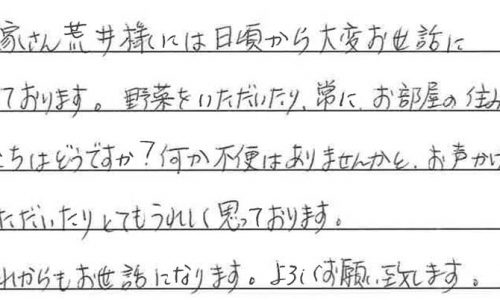 家さん荒井様には日頃から大変お世話に
ております。野菜をいただいたり、常に、お部屋の住み
ちはどうですか？何か不便はありませんかと、お声かけ
ただいたりとてもうれしく思っております。
れからもお世話になります。よろしくお願い致します。